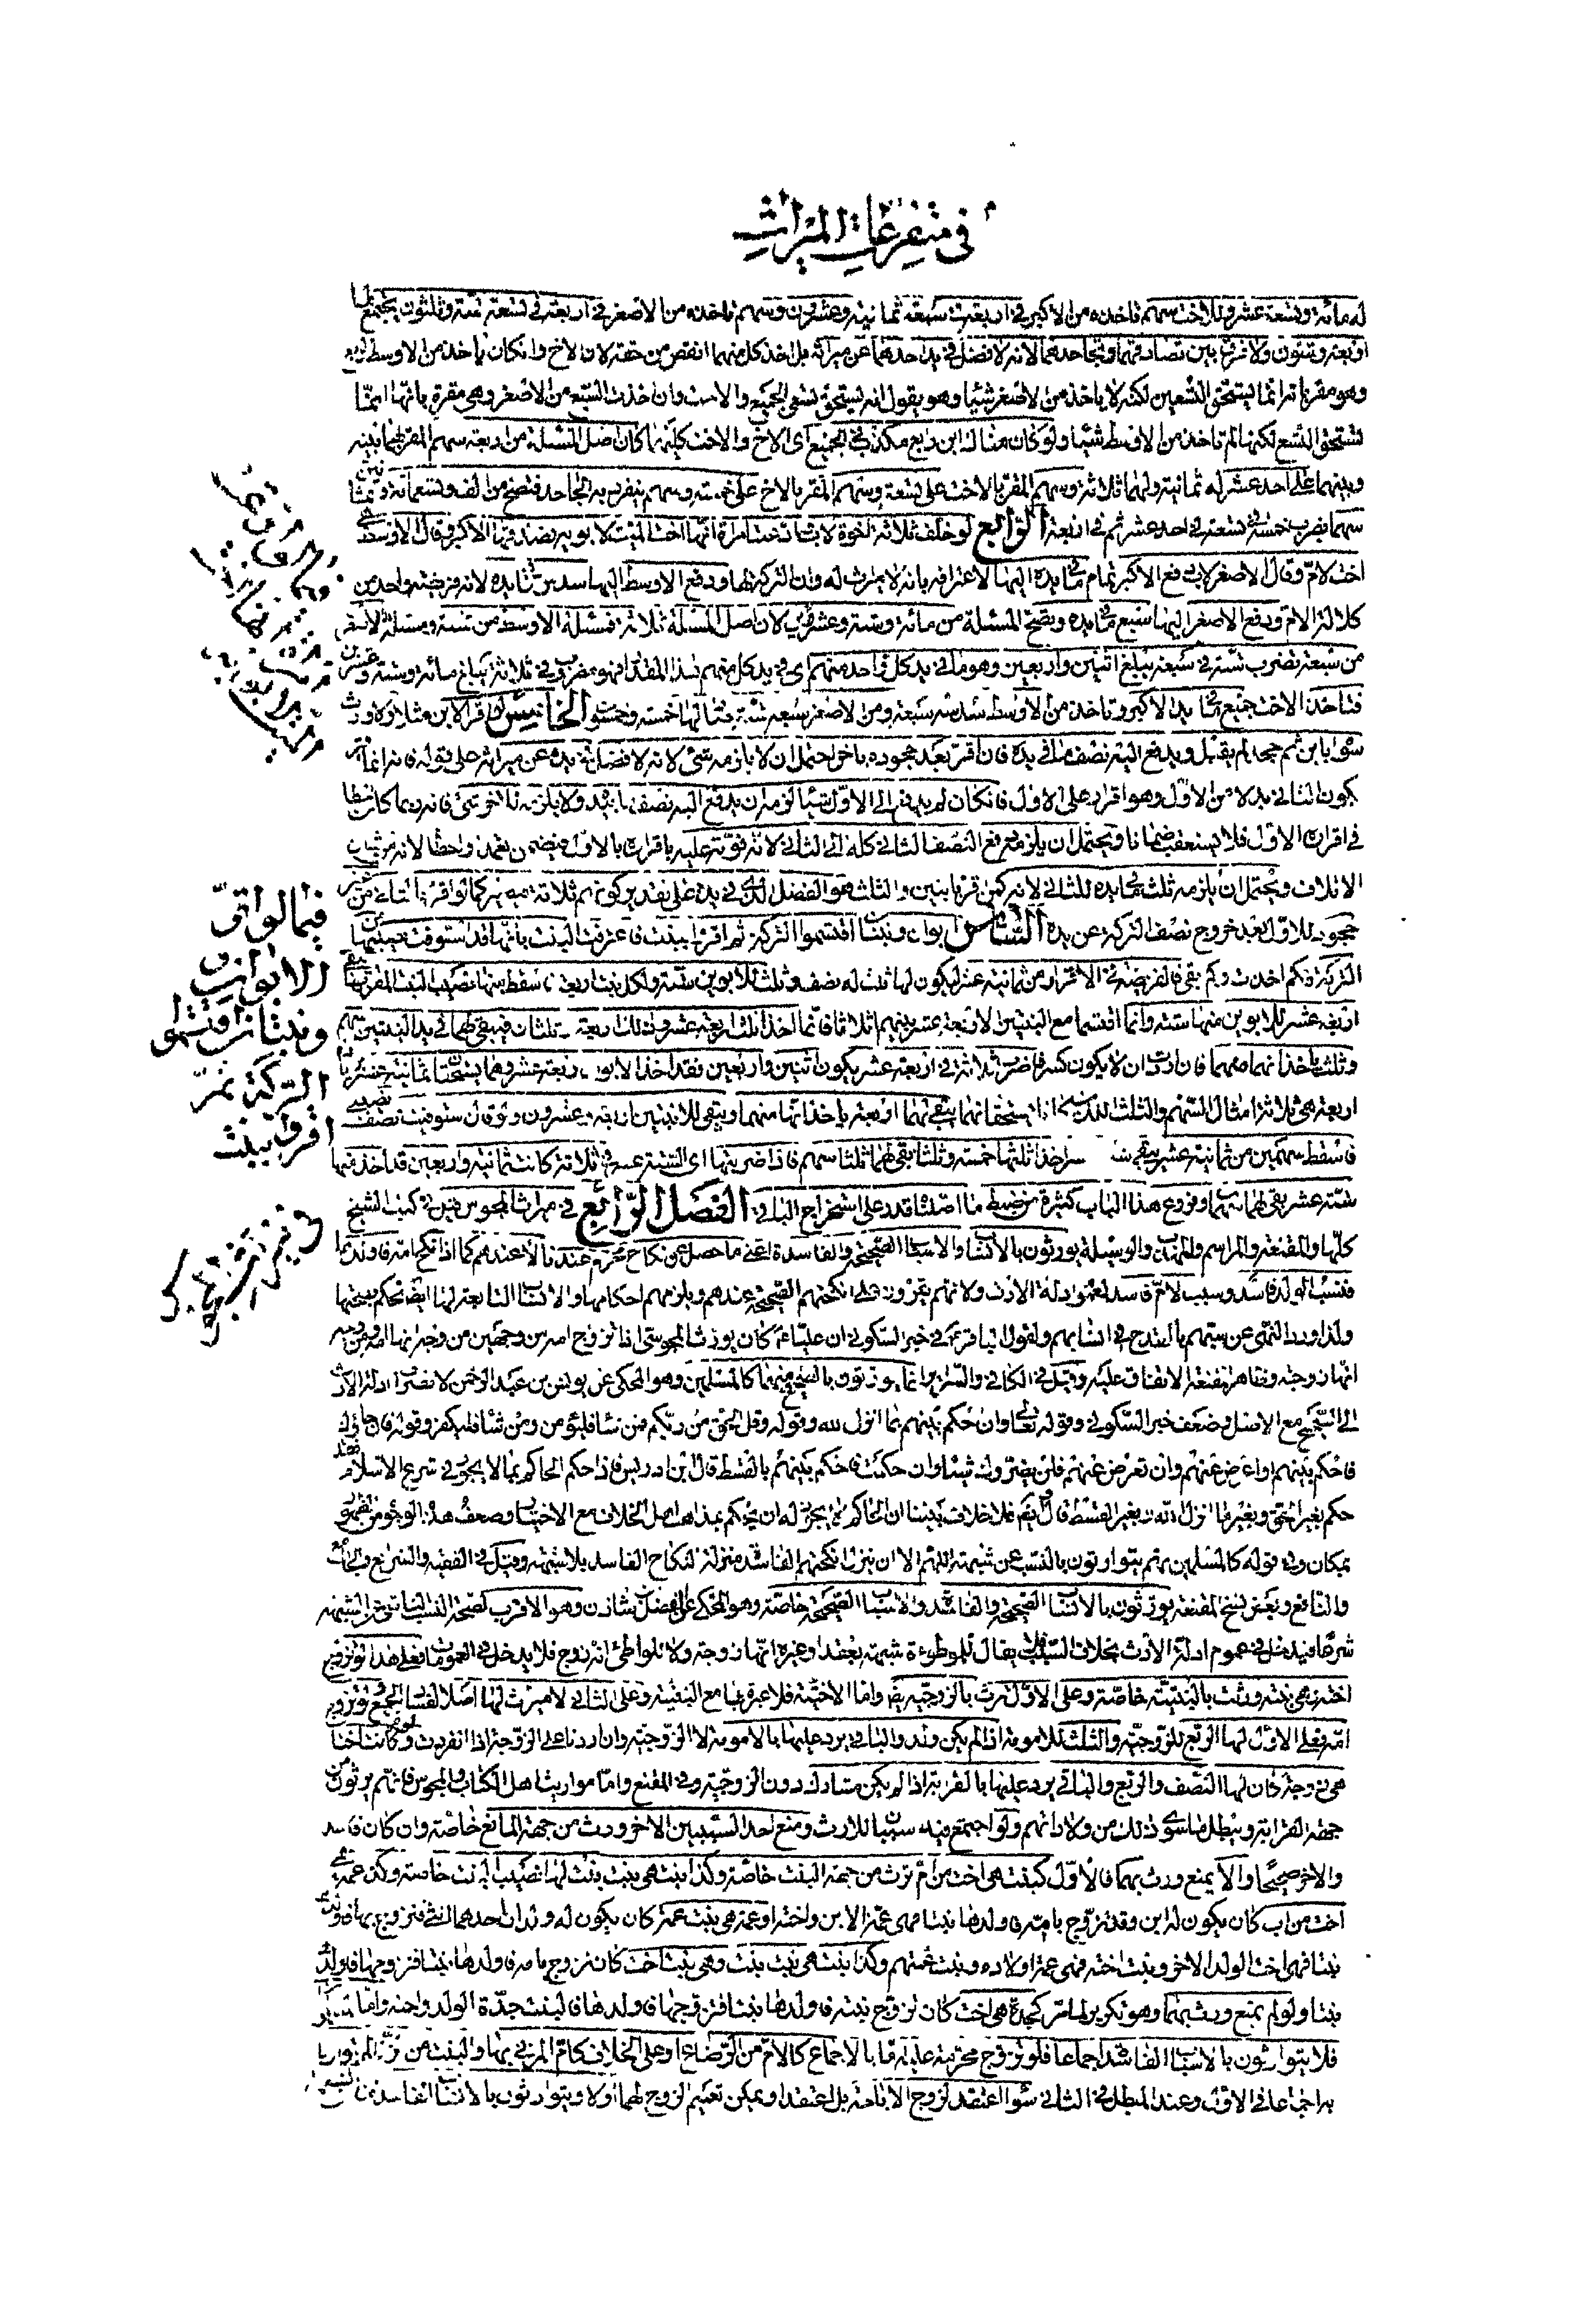 في متفرعات الميراث
له مائة وتسعة عشر وللاخت سهم تاخذه من الاكبر في اربعة في سبعة ثمانية وعشرون وسهم تاخذه من الاصغر في اربعة في تسعة ستة وثلثون يجتمع لها
اربعة وستون ولا فرق بين تصادقهما وتجاحدهما لانه لا فضل في يد احدهما عن ميراثه بل اخذ كل منهما انقص من حقه لان الاخ وان كان ياخذ من الاوسط
وهو مقر بانه انما يستحق التسعين لكنه لا ياخذ من الاصغر شيئا وهو يقول انه يستحق تسعي الجميع والاخت وان اخذت السبع من الاصغر وهي مقرة بانها انما
تستحق التسع لكنها لم تاخذ من الاوسط شيئا ولو كان هناك ابن رابع مكذب في الجميع اي الاخ والاخت كليهما كان اصل المسئلة من اربعة سهم المقر بهما بينه
وبينهما على احد عشر له ثمانية ولهما ثلاثة وسهم المقر بالاخت على تسعة وسهم المقر بالاخ على خمسة وسهم ينفرد به الجاحد فتصح من الف وتسعمائة وثمانين
سهما بضرب خمسة في تسعة في احد عشر ثم في اربعة الرابع لو خلف ثلاثة اخوة لاب فادعت امراة انها اخت الميت لابويه فصدقها الاكبر وقال الاوسط هي
اخت لام وقال الاصغر لاب دفع الاكبر تمام ما في يده اليها لاعترافه بانه لا ميراث له وان التركة لها ودفع الاوسط اليها سدس ما في يده لانه فريضة واحد من
كلالة الام ودفع الاصغر اليها سبع ما في يده وتصح المسئلة من مائة وستة وعشرين لان اصل المسئلة ثلاثة فمسئلة الاوسط من ستة ومسئلة الاصغر
من سبعة تضرب ستة في سبعة يبلغ اثنين واربعين وهو ما في يد كل واحد منهم اي في يد كل منهم هذا المقدار فهو مضروب في ثلاثة تبلغ مائة وستة وعشرين
فتاخذ الاخت جميع ما في يد الاكبر وتاخذ من الاوسط سدسه سبعة ومن الاصغر سبعه ستة فما لها خمسة وخمسون الخامس لو اقر الابن مثلا ولا وارث
سواه بابن ثم جحد لم يقبل ويدفع اليه نصف ما في يده فان اقر بعد جحوده باخر احتمل ان لا يلزمه شئ لانه لا فضل في يده عن ميراثه على قوله فانه انما اقر
بكون الثاني بدلا من الاول وهو اقرار على الاول فان كان لم يدفع الى الاول شيئا لزمه ان يدفع اليه نصف ما بيده ولا يلزمه للاخر شئ فانه ربما كان مخطئا
في اقراره الاول فلا يستعقب ضمانا ويحتمل ان يلزمه دفع النصف الثاني كله الى الثاني لانه فوته عليه باقراره بالاول فيضمن بعمده وخطائه لانه من باب
الاتلاف ويحتمل ان يلزمه ثلث ما في يده للثاني لانه كمن اقر بابنين والثلث هو الفضل الذي في يده على تقدير كونهم ثلاثة فيصير كما لو اقر بالثاني من غير
جحود للاول بعد خروج نصف التركة عن يده السادس ابوان وبنتان اقتسموا التركة ثم اقروا ببنت فاعترفت البنت بانها قد استوفت نصيبها من
التركة فكم اخذت وكم بقي فالفريضة في الاقرار من ثمانية عشر ليكون لها ثلث له نصف وثلث للابوين ستة ولكل بنت اربعة فاسقط منها نصيب البنت المقر بها يبقى
اربعة عشر للابوين منها ستة وانما اقتسما مع البنتين الاربعة عشر بينهم اثلاثا فانما اخذا ثلث اربعة عشر وذلك اربعة وثلثان فيبقى لهما في يد البنتين سهم
وثلث ياخذانهما منهما فان اردت ان لا يكون كسر فاضرب ثلاثة في اربعة عشر يكون اثنين واربعين فقد اخذ الابوان اربعة عشر وهما يستحقان ثمانية عشر لان
اربعة هي ثلاثة امثال السهم والثلث
فاسقط سهمين من ثمانية عشر يبقى ستة عشر اخذا ثلثها خمسة وثلثا بقي لهما ثلثا سهم فاذا ضربتها اي الستة عشر في ثلاثة كانت ثمانية واربعين قد اخذ منها
ستة عشر بقي لهما سهمان وفروع هذا الباب كثيرة من ضبط ما اصلناه قدر على استخراج الباقي الفصل الرابع في ميراث المجوس قيل في كتب الشيخ
كلها والمقنعة والمراسم والمهذب والوسيلة يورثون بالانساب والاسباب الصحيحة والفاسدة اعني ما حصل عن نكاح محرم عندنا لا عندهم كما اذا نكح امه فاولدها
فنسب الولد فاسد وسبب الام فاسد لعموم ادلة الارث ولانهم يقرون على انكحتهم الصحيحة عندهم ويلزمهم احكامها والانساب التابعة لها ايضا تحكم بصحتها
ولذا ورد النهي عن سبهم بالقدح في انسابهم ولقول الباقر ع في خبر السكوني ان عليا ع كان يورث المجوسي اذا تزوج امه من وجهين من وجه انها امه ومن وجه
انها زوجته وظاهر المقنعة الاتفاق عليه وقيل في الكافي والسرائر انما يورثون بالصحيح منهما كالمسلمين وهو المحكي عن يونس بن عبد الرحمن لانصراف ادلة الارث
الى الصحيح مع الاصل وضعف خبر السكوني وقوله تعالى وان احكم بينهم بما انزل الله وقوله وقل الحق من ربكم فمن شاء فليؤمن ومن شاء فليكفر وقوله فان جاؤك
فاحكم بينهم او اعرض عنهم وان تعرض عنهم فلن يضروك شيئا وان حكمت فاحكم بينهم بالقسط قال ابن ادريس فاذا حكم الحاكم بما لا يجوز في شرع الاسلام فقد
حكم بغير الحق وبغير ما انزل الله وبغير القسط قال وايضا فلا خلاف بيننا ان الحاكم لا يجوز له ان يحكم بمذاهب اهل الخلاف مع الاختيار وضعف هذه الوجوه من الظهور
بمكان وفي قوله كالمسلمين انهم يتوارثون بالنسب عن شبهة اللهم الا ان ينزل انكحتهم الفاسدة منزلة النكاح الفاسد بلا شبهة وقيل في الفقيه والشرايع
والنافع وبعض نسخ المقنعة يورثون بالانساب الصحيحة والفاسدة والاسباب الصحيحة خاصة وهو المحكي عن الفضل بن شاذان وهو الاقرب لصحة النسب الناشي عن الشبهة
شرعا فيدخل في عموم ادلة الارث بخلاف السبب فلا يقال للموطوءة شبهة بعقد او غيره انها زوجة ولا للواطئ انه زوج فلا يدخل في العمومات فعلى هذا لو تزوج
اخته وهي بنته ورثت بالبنتية خاصة وعلى الاول ترث بالزوجية ايضا واما الاختية فلا عبرة بها مع البنتية وعلى الثاني لا ميراث لها اصلا لفساد الجميع ولو تزوج
امه فعلى الاول لها الربع للزوجية والثلث للامومة اذا لم يكن ولد والباقي يرد عليها بالامومة لا الزوجية وان رددنا على الزوجة اذا انفردت ولو كانت اختا
هي زوجة كان لها النصف والربع والباقي يرد عليها بالقرابة اذا لم يكن مشارك دون الزوجية وفي المقنع واما مواريث اهل الكتاب والمجوس فانهم يرثون من
جهة القرابة ويبطل ما سوى ذلك من ولاداتهم ولو اجتمع فيه سببان للارث ومنع احد السببين الاخر ورث من جهة المانع خاصة وان كان فاسدا
والاخر صحيحا والا يمنع ورث بهما فالاول كبنت هي اخت من ام ترث من جهة البنت خاصة وكذا بنت هي بنت بنت لها نصيب البنت خاصة وكذا عمة هي
اخت من اب كان يكون له ابن وقد تزوج بامه فاولدها بنتا فهي عمة الابن واخته او عمة هي بنت عمة كان يكون له ولدان احدهما انثى فتزوج بها فاولدت
بنتا فهي اخت الولد الاخر وبنت اخته فهي عمة اولاده وبنت عمتهم وكذا بنت هي بنت بنت وهي بنت اخت كان تزوج بامه فاولدها بنتا فتزوجها فاولدت
بنتا ولو لم يمنع ورث بهما وهو تكرير لما مر كجدة هي اخت كان تزوج بنته فاولدها بنتا فتزوجها فاولدها فالبنت جدة الولد واخته واما المسلم
فلا يتوارثون بالاسباب الفاسدة اجماعا فلو تزوج محرمة عليه اما بالاجماع كالام من الرضاع او على الخلاف كام المزني بها والبنت من الزنا لم يتوارثا
به اجماعا في الاول وعند المبطل في الثاني سواء اعتقد الزوج الاباحة بل اعتقدا ويمكن تعميم الزوج لهما اولا ويتوارثون بالانساب الفاسدة
فيما لو اقر
الابوان و
وبنتان اقتسموا
التركة ثم
اقروا ببنت